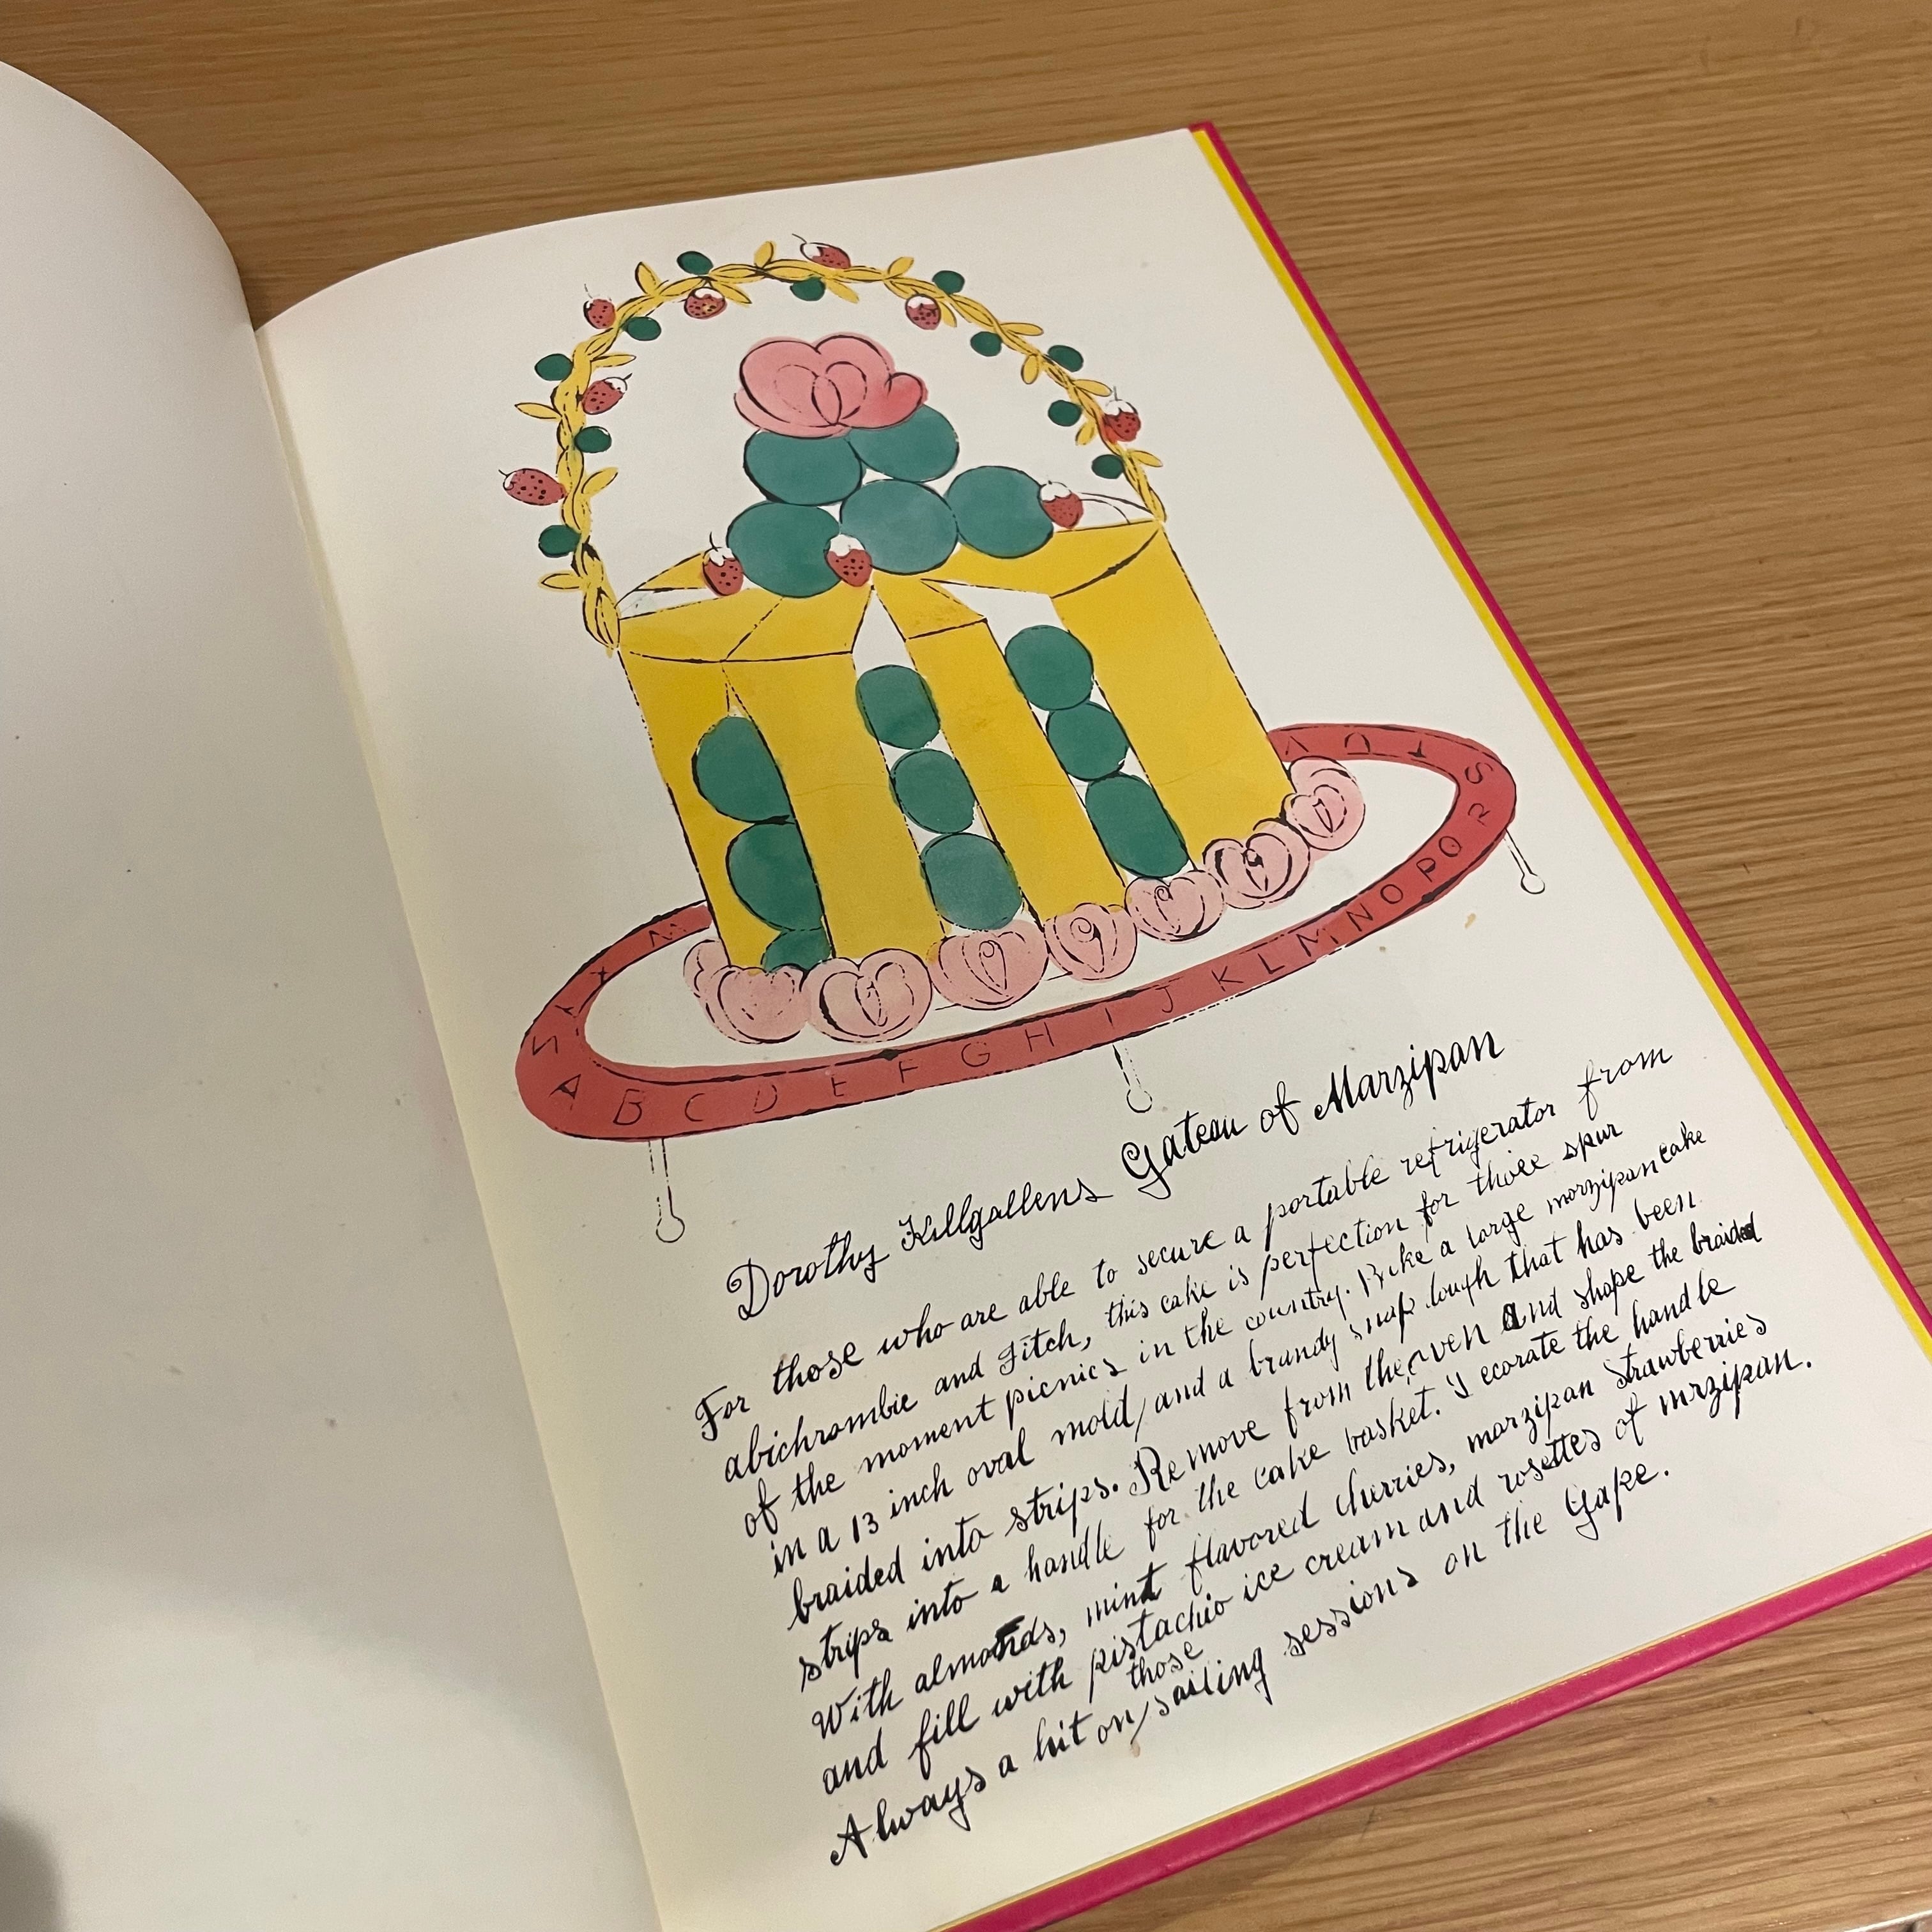 A B C D E F G H I J K L M N O P Q R S
Dorothy Killgallens Gateau of Marzipan
For those who are able to secure a portable refrigerator from
abichrombie and Fitch, this cake is perfection for those spur
of the moment picnics in the country. Bake a large marzipan cake
in a 13 inch oval mold, and a brandy snap dough that has been
braided into strips. Remove from the oven and shape the braided
strips into a handle for the cake basket. Decorate the handle
With almonds, mint flavored cherries, marzipan strawberries
and fill with pistachio ice cream and rosettes of mrzipan.
Always a hit on those sailing sessions on the Gape.